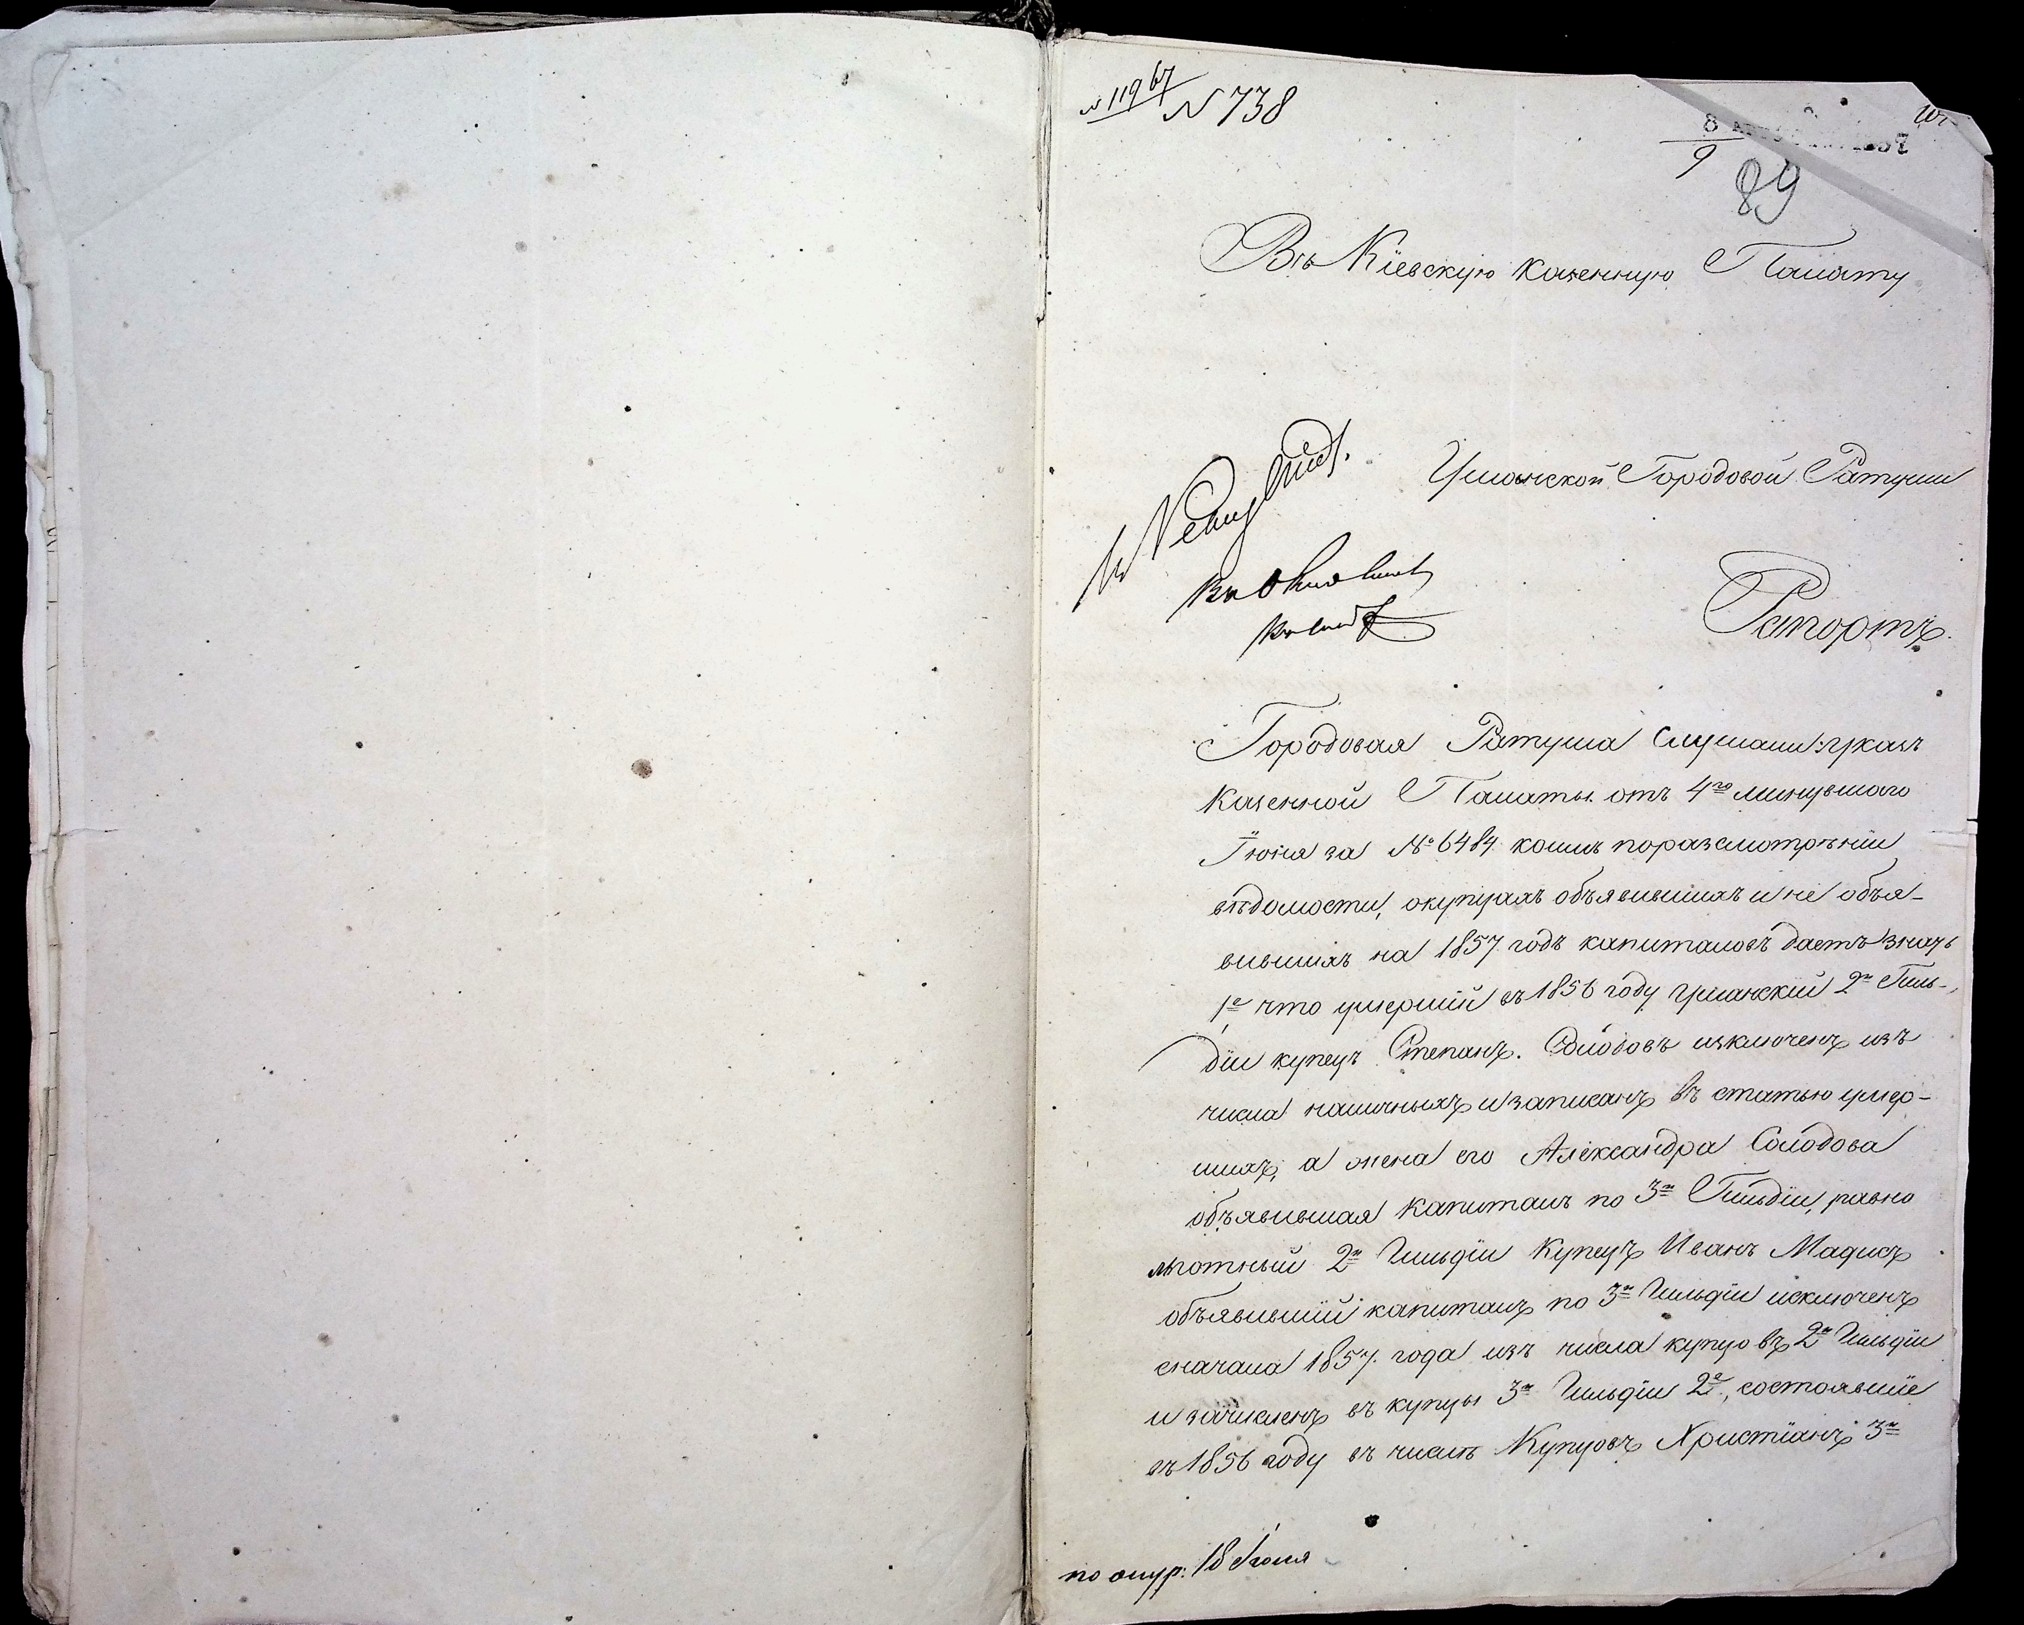 № 11967
N 738
8
9
89
Въ Кіевскую казенную Палату
Уманской Городовой Ратуши
Рапортъ.
Городовая Ратуша слушали: указъ
Казенной Палаты отъ 4го минувшаго
Іюня за № 6484 коимъ поразсмотрѣніи
вѣдомости, окупцахъ объявившихъ и не объя-
вившихъ на 1857 годъ капиталовъ даетъ знать
1е что умершій въ 1856 году Уманскій 2й Гиль-
діи купецъ Степанъ Солодовъ изключенъ изъ
числа наличныхъ и записанъ въ статью умер-
шихъ, а жена его Александра Солодова
объявившая капиталъ по 3й Гильдіи, равно
льготный 2й Гильдіи Купецъ Иванъ
объявившій капиталъ по 3й Гильдіи исключенъ
сначала 1857 года изъ числа купцовъ 2й Гильдіи
и зачисленъ въ купцы 3й Гильдіи 2е, состоявшіе
въ 1856 году въ числѣ Купцовъ Христіанъ 3й
18 Іюля